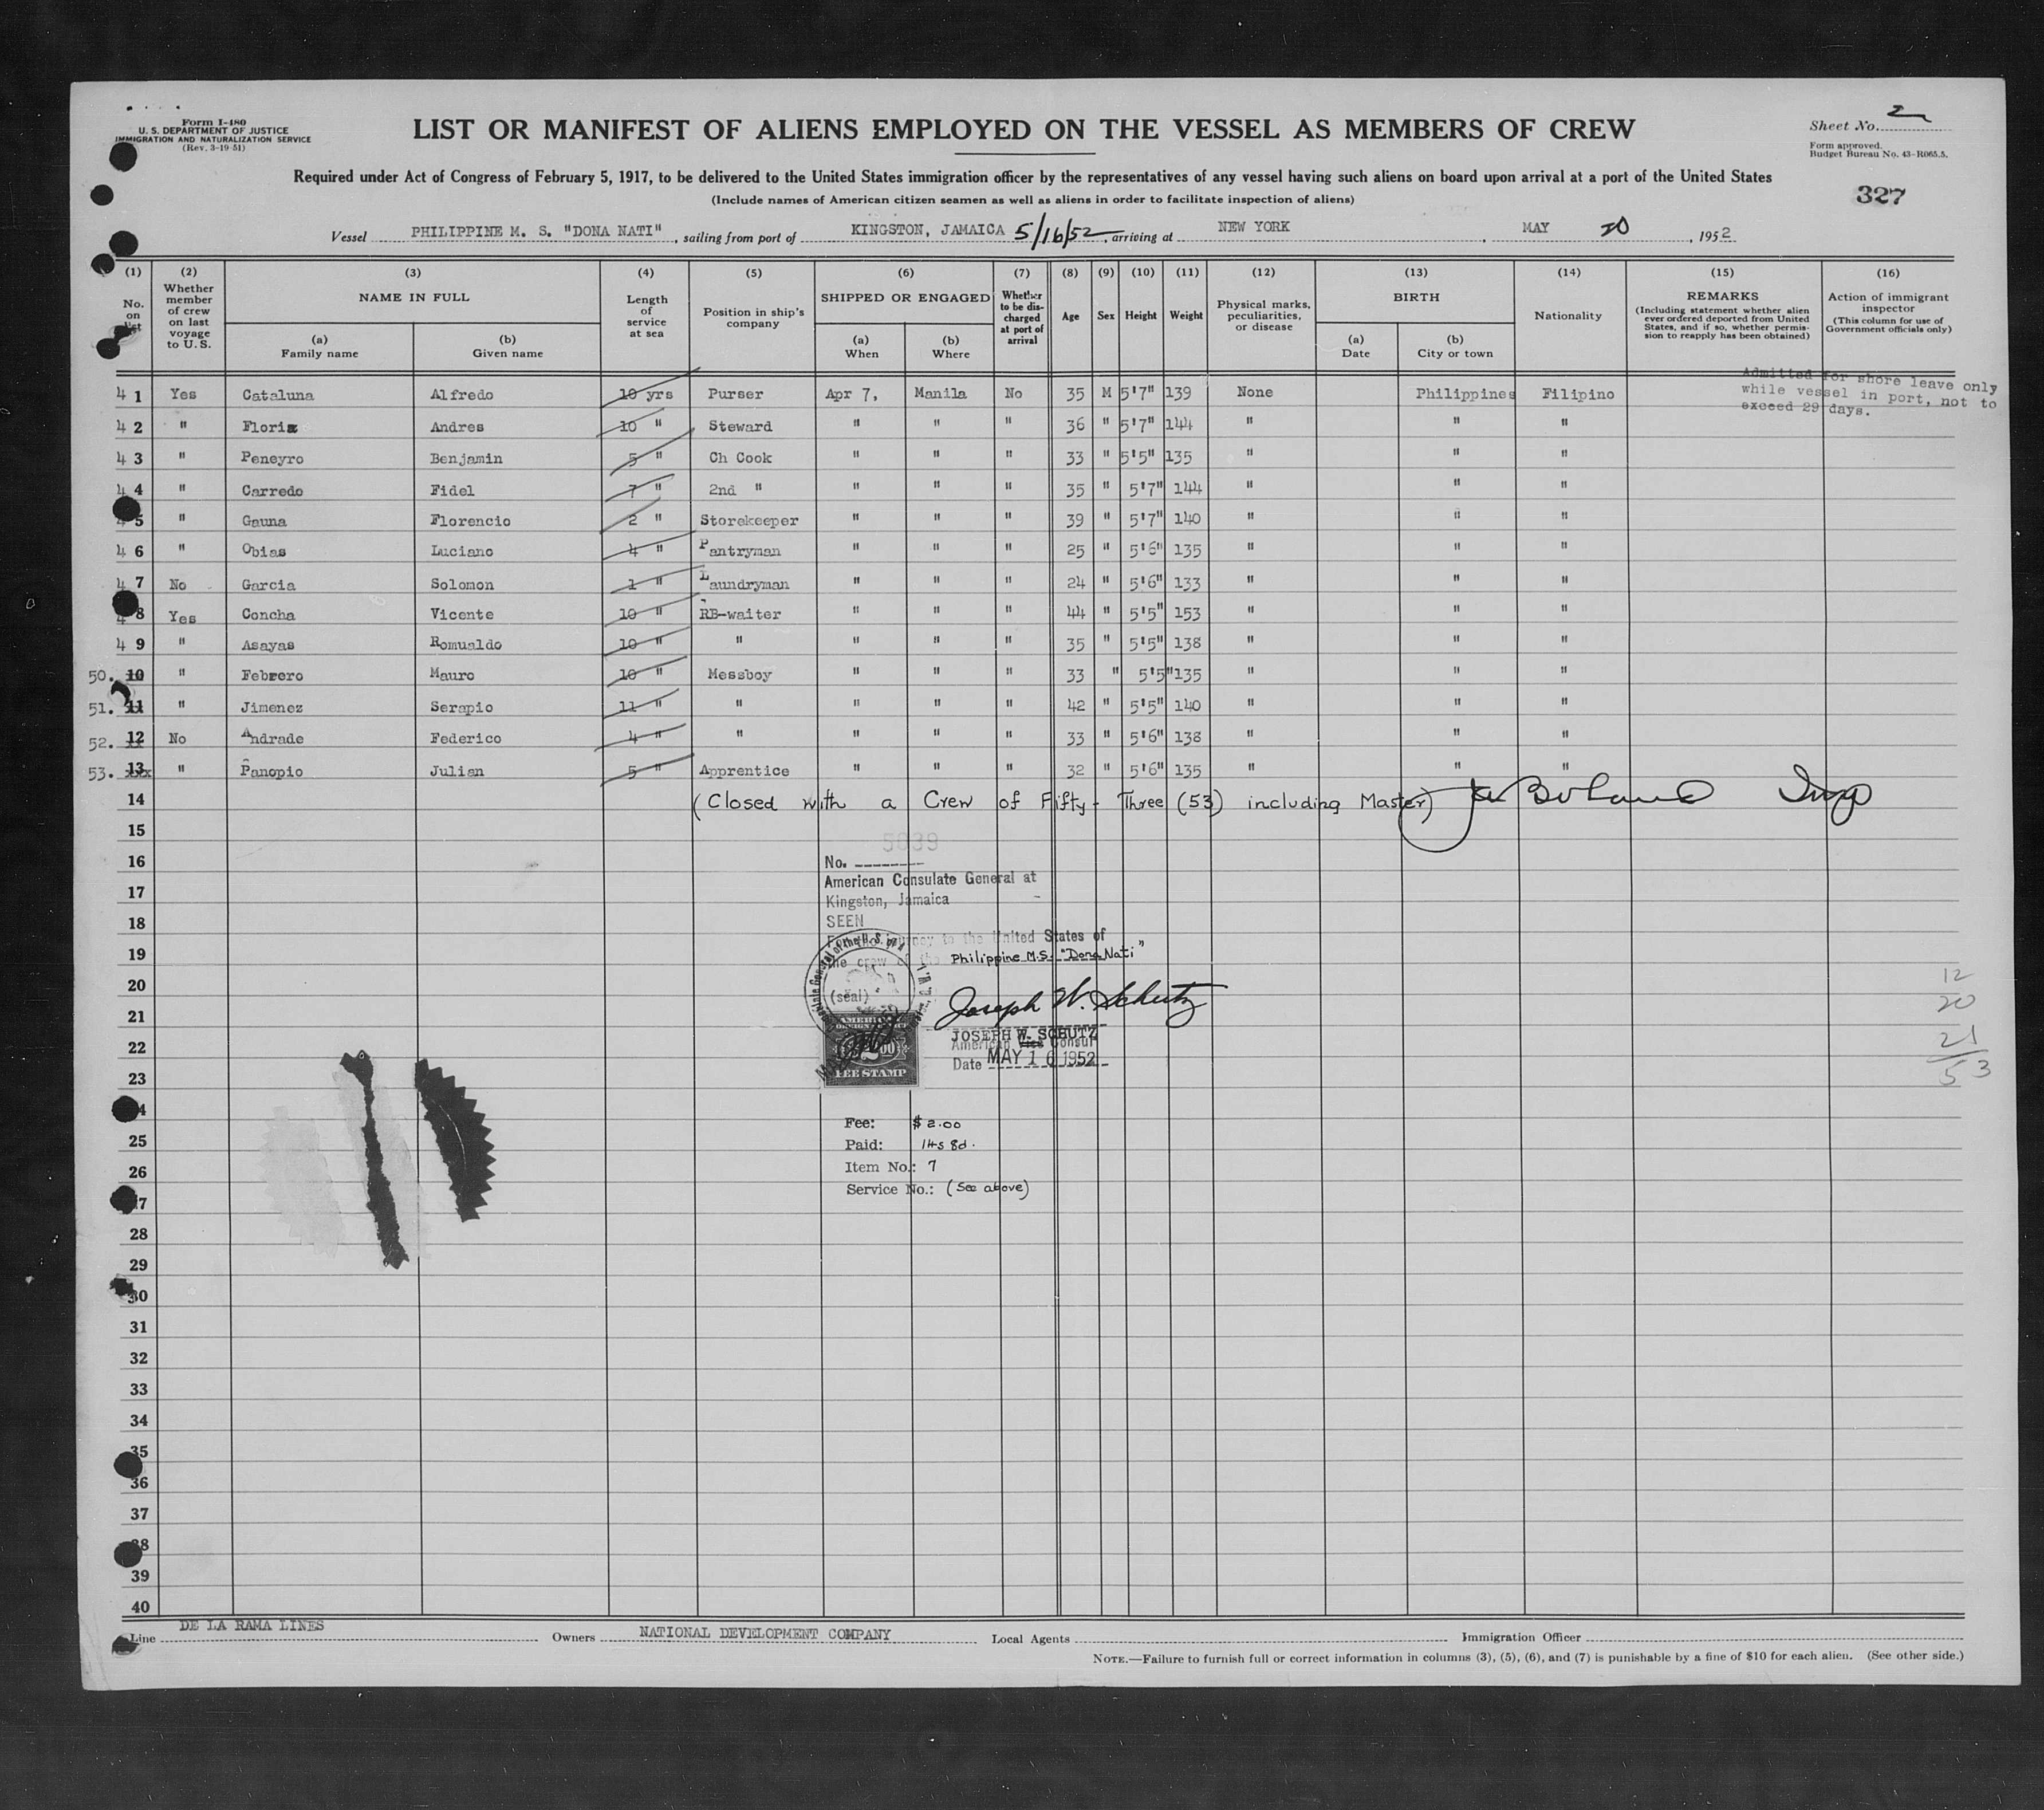 Form I-480
U. S. DEPARTMENT OF JUSTICE
IMMIGRATION AND NATURALIZATION SERVICE
(Rev. 3-19-51)
LIST OR MANIFEST OF ALIENS EMPLOYED ON THE VESSEL AS MEMBERS OF CREW
Sheet No. 2
Form approved.
Budget Bureau No. 43-R065.5.
Required under Act of Congress of February 5, 1917, to be delivered to the United States immigration officer by the representatives of any vessel having such aliens on board upon arrival at a port of the United States
327
(Include names of American citizen seamen as well as aliens in order to facilitate inspection of aliens)
Vessel PHILIPPINE M. S. "DONA NATI", sailing from port of KINGSTON, JAMAICA 5/16/52, arriving at NEW YORK, MAY 20, 1952
(1) (2) (3) (4) (5) (6) (7) (8) (9) (10) (11) (12) (13) (14) (15) (16)
No. on list
Whether member of crew on last voyage to U. S.
NAME IN FULL
(a) Family name
(b) Given name
Length of service at sea
Position in ship's company
SHIPPED OR ENGAGED
(a) When
(b) Where
Whether to be discharged at port of arrival
Age
Sex
Height
Weight
Physical marks, peculiarities, or disease
BIRTH
(a) Date
(b) City or town
Nationality
REMARKS
(Including statement whether alien ever ordered deported from United States, and if so, whether permission to reapply has been obtained)
Action of immigrant inspector
(This column for use of Government officials only)
Admitted for shore leave only
while vessel in port, not to
exceed 29 days.
4 1 Yes Cataluna Alfredo 10 yrs Purser Apr 7, Manila No 35 M 5'7" 139 None Philippines Filipino
4 2 " Andres 10 " Steward " " " 36 " 5'7" 144 " " "
4 3 " Peneyro Benjamin 5 " Ch Cook " " " 33 " 5'5" 135 " " "
4 4 " Carredo Fidel 7 " 2nd " " " " 35 " 5'7" 144 " " "
4 5 " Gauna Florencio 2 " Storekeeper " " " 39 " 5'7" 140 " " "
4 6 " Obias Luciano 4 " Pantryman " " " 25 " 5'6" 135 " " "
4 7 No Garcia Solomon 1 " Laundryman " " " 24 " 5'6" 133 " " "
4 8 Yes Concha Vicente 10 " RB-waiter " " " 44 " 5'5" 153 " " "
4 9 " Asayas Romualdo 10 " " " " " 35 " 5'5" 138 " " "
50. 10 " Febrero Mauro 10 " Messboy " " " 33 " 5'5" 135 " " "
51. 11 " Jimenez Serapio 11 " " " " " 42 " 5'5" 140 " " "
52. 12 No Andrade Federico 4 " " " " " 33 " 5'6" 138 " " "
53. 13 " Panopio Julian 5 " Apprentice " " " 32 " 5'6" 135 " " "
14 (Closed with a Crew of Fifty-Three (53) including Master)
15
5039
16 No.
17 American Consulate General at
Kingston, Jamaica
18 SEEN
For the journey to the United States of
19 the crew of the Philippine M.S. "Dona Nati"
20 (seal) Joseph W. Schutz
21
JOSEPH W. SCHUTZ
22 American Vice Consul
Date MAY 16 1952
FEE STAMP
12
20
21
53
23
24
Fee: $2.00
25 Paid: 14s 8d.
26 Item No.: 7
27 Service No.: (See above)
28
29
30
31
32
33
34
35
36
37
38
39
40
Line DE LA RAMA LINES Owners NATIONAL DEVELOPMENT COMPANY Local Agents Immigration Officer
NOTE.—Failure to furnish full or correct information in columns (3), (5), (6), and (7) is punishable by a fine of $10 for each alien. (See other side.)